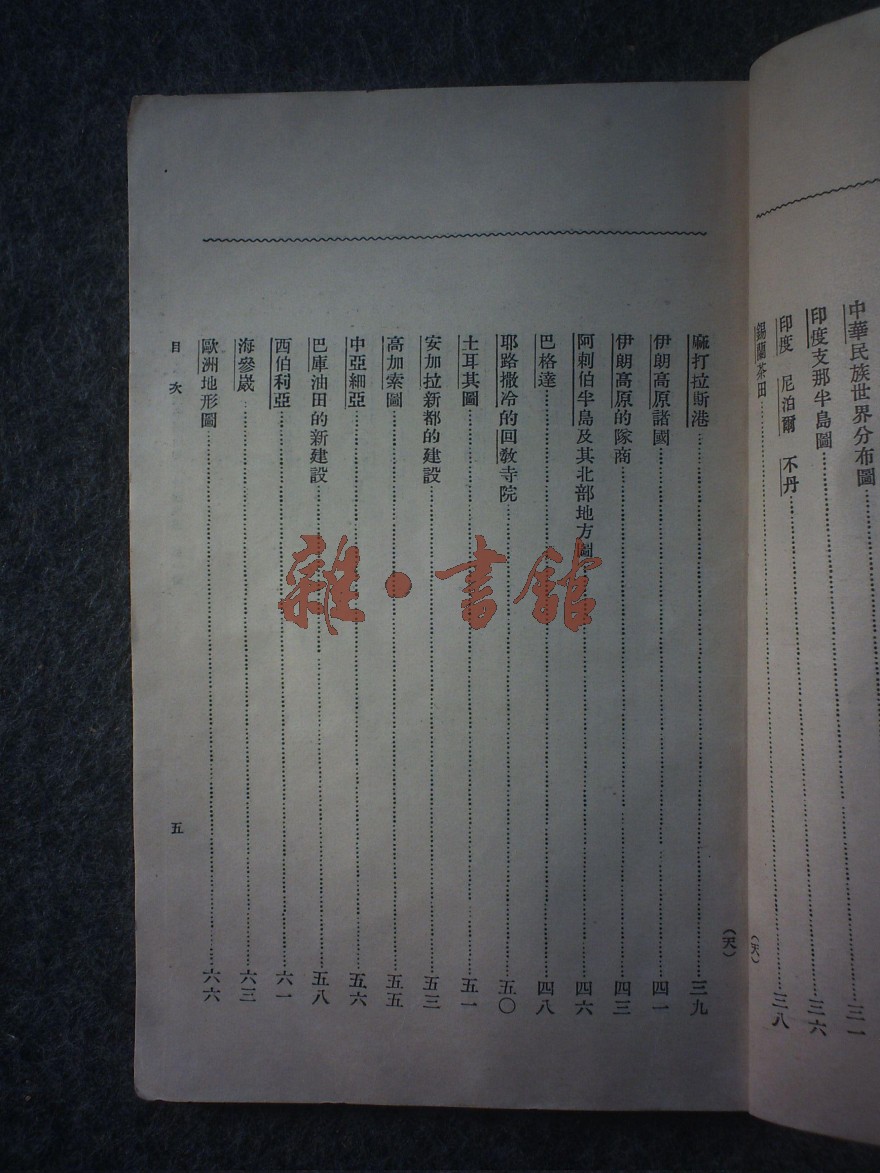 中華民族世界分布圖……三一
印度支那半島圖……三六
印度 尼泊爾 不丹……三八
錫蘭茶田……
(天)
(天)
麻打拉斯港……三九
伊朗高原諸國……四一
伊朗高原的隊商……四三
阿剌伯半島及其北部地方圖……四六
巴格達……四八
耶路撒冷的回教寺院……五〇
土耳其圖……五一
安加拉新都的建設……五三
高加索圖……五五
中亞細亞……五六
巴庫油田的新建設……五八
西伯利亞……六一
海參崴……六三
歐洲地形圖……六六
目次 五
雜·書館